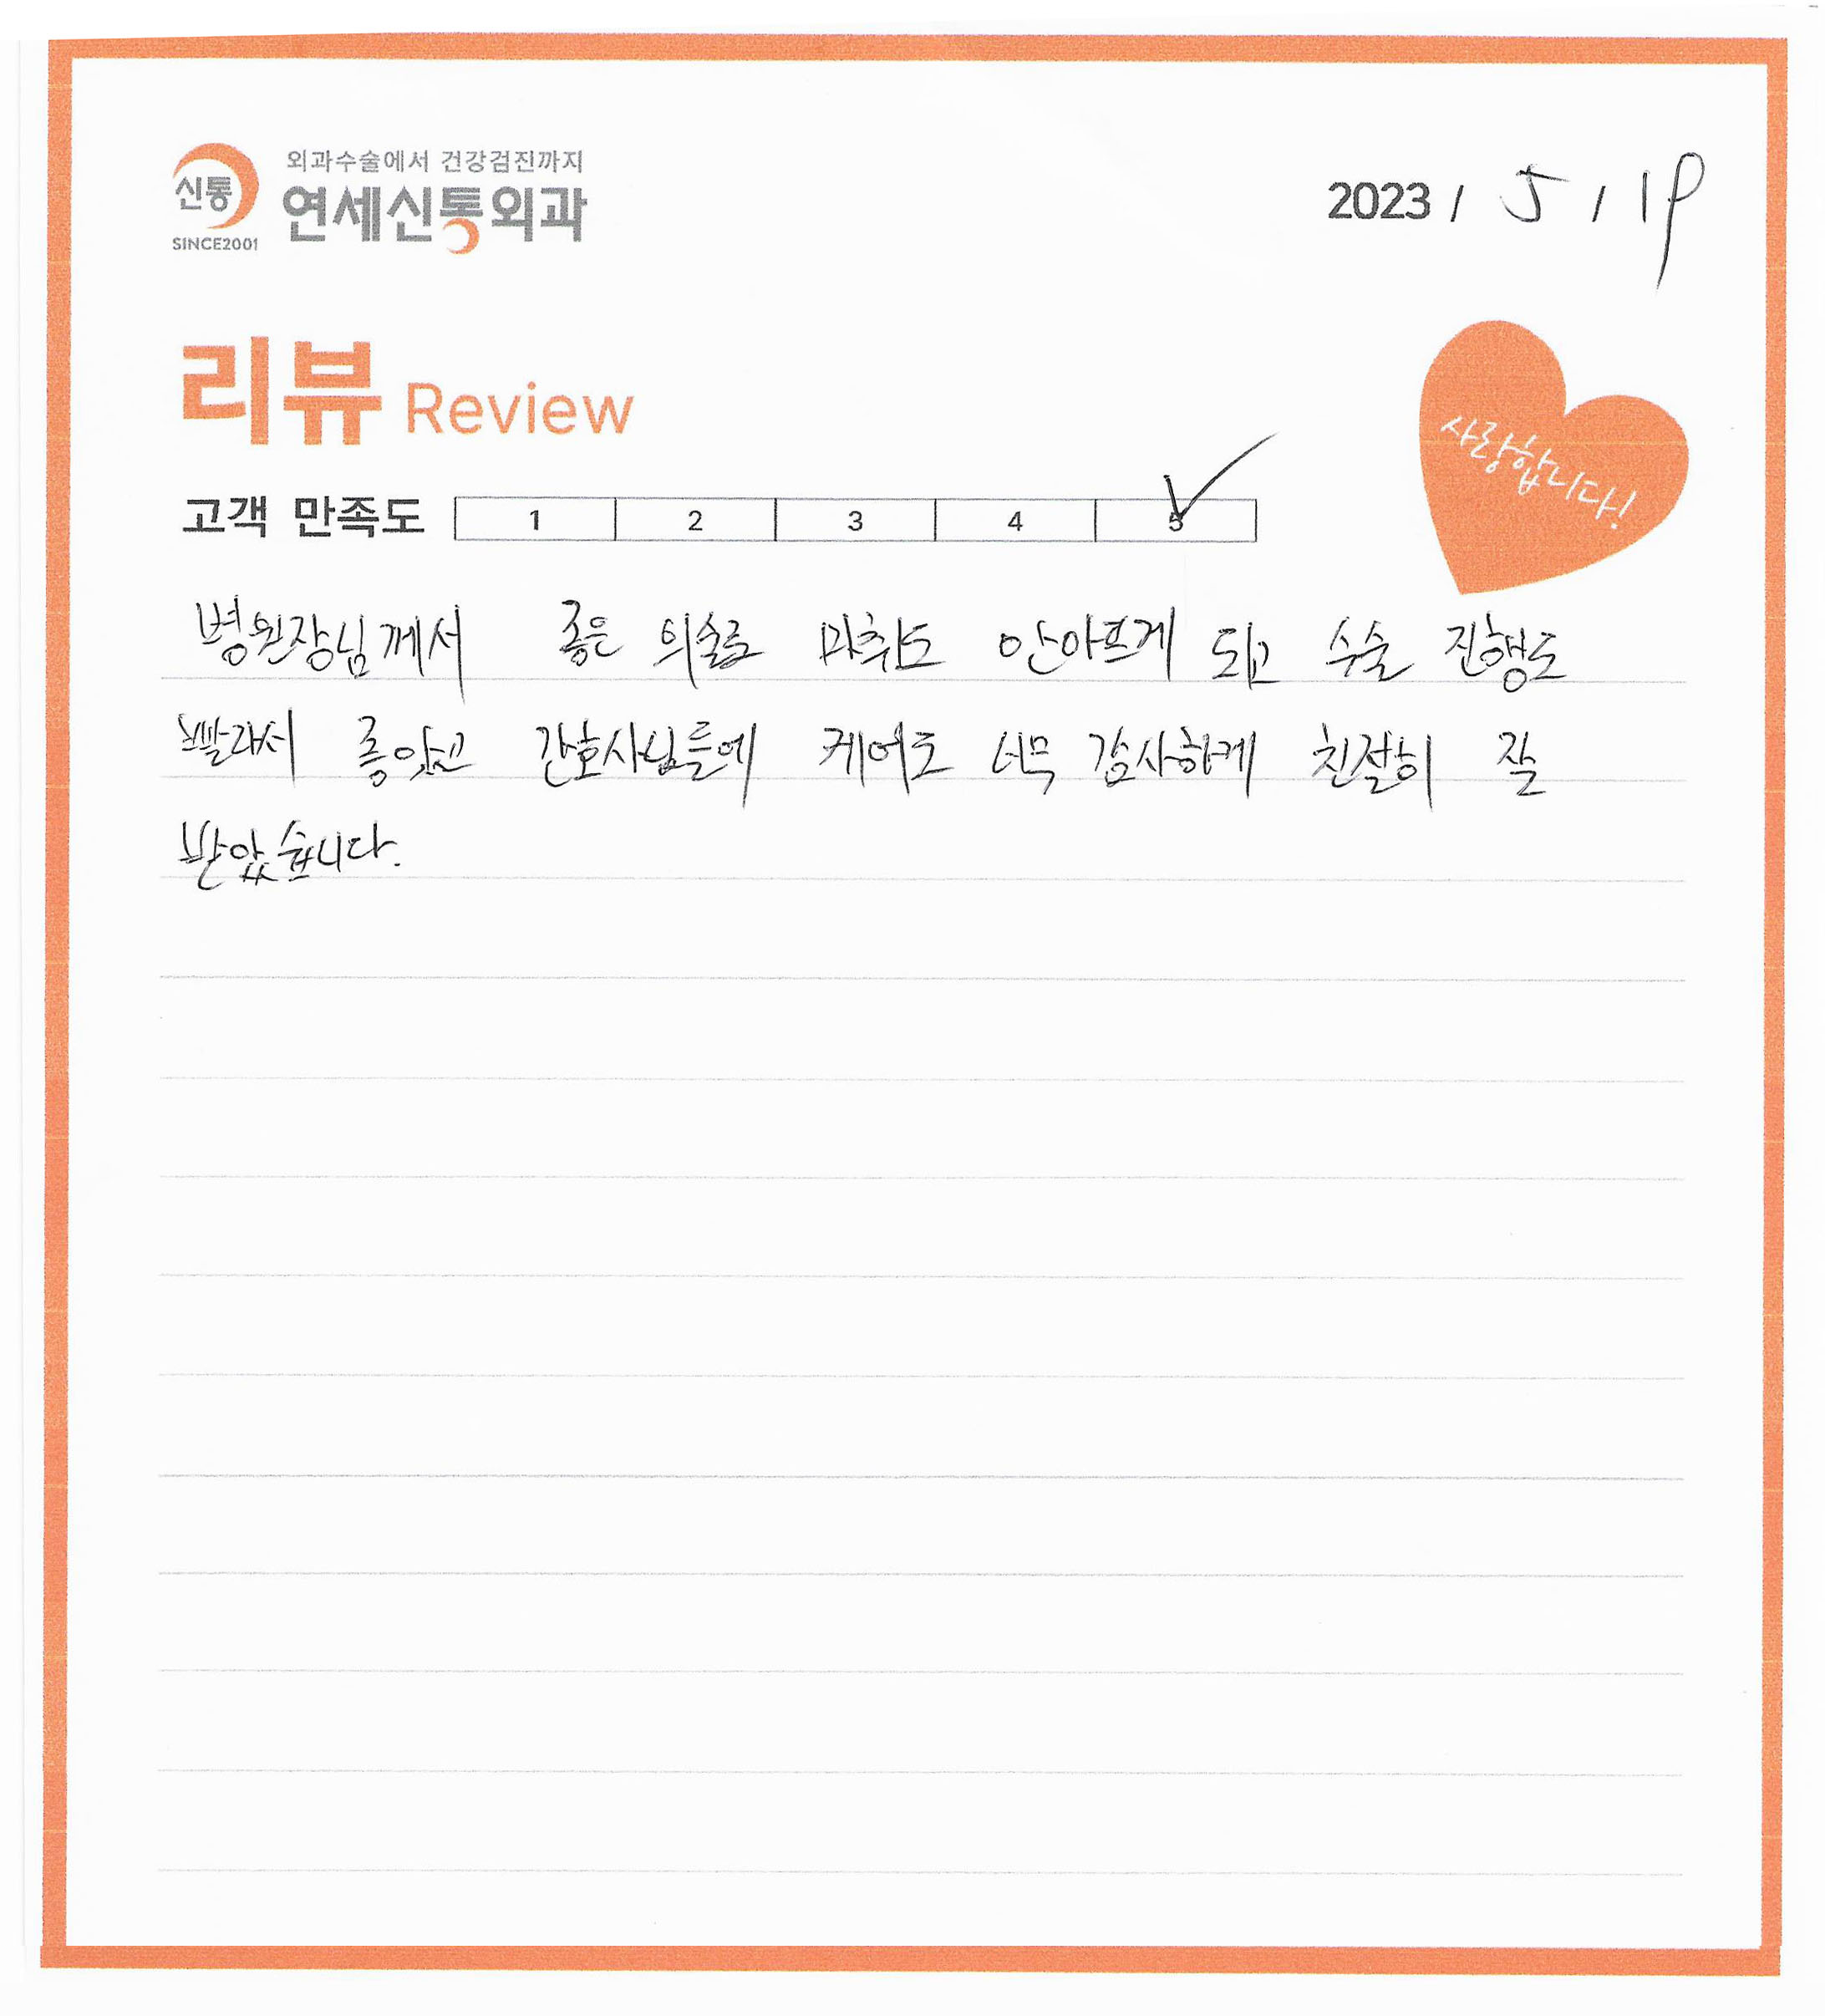 신통
SINCE2001
외과수술에서 건강검진까지
연세신통외과
2023 / 5 / 19
리뷰 Review
사랑합니다!
고객 만족도 1 2 3 4 5
병원장님께서 좋은 의술로 마취도 안아프게 되고 수술 진행도
빨라서 좋았고 간호사님들에 케어도 너무 감사하게 친절히 잘
받았습니다.